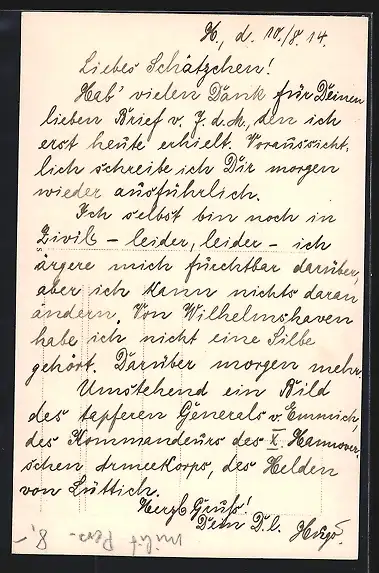 H., d. 10./8. 14.
Liebes Schätzchen!
Hab' vielen Dank für Deinen
lieben Brief v. 7. d. M., den ich
erst heute erhielt. Voraussicht-
lich schreibe ich Dir morgen
wieder ausführlich.
Ich selbst bin noch in
Zivil – leider, leider – ich
ärgere mich furchtbar darüber,
aber ich kann nichts daran
ändern. Von Wilhelmshaven
habe ich nicht eine Silbe
gehört. Darüber morgen mehr.
Umstehend ein Bild
des tapferen Generals v. Emmich,
des Kommandeurs des X. Hannover-
schen Armeekorps, des Helden
von Lüttich.
Herzl. Gruß!
Dein D. l. Hugo
Milit Pers- 8,-